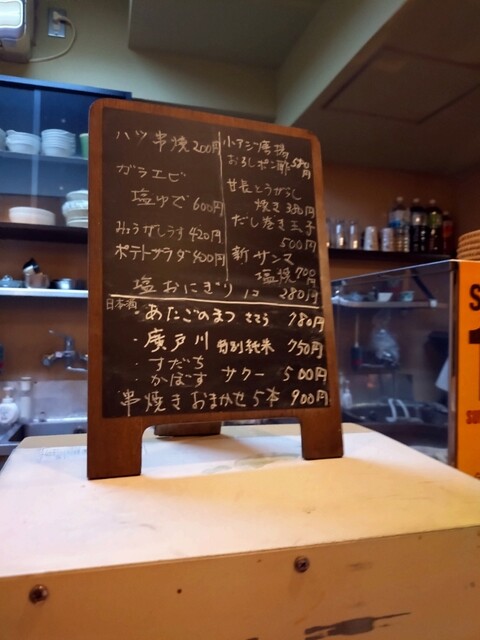 ハツ串焼 200円
ガラエビ
塩ゆで 600円
みょうがしょうす 420円
ポテトサラダ 400円
小アジ唐揚
おろしポン酢 580円
甘長とうがらし
焼き 350円
だし巻き玉子
500円
新サンマ
塩焼 900円
塩おにぎり 1コ 280円
日本酒
・あたごのまつ ささら 780円
・廣戸川 特別純米 750円
・すだち
・かぼす サワー 500円
串焼き おまかせ 5本 900円